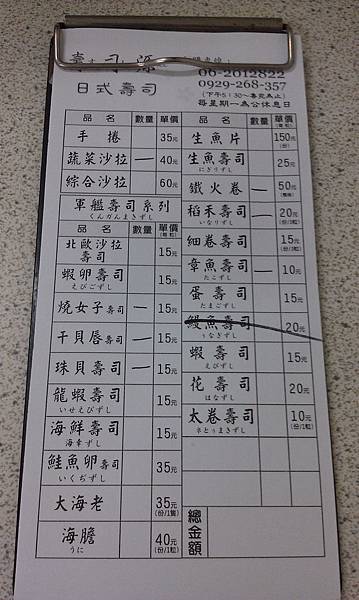 壽司源
06-2012822
0929-268-357
日式壽司
(下午5:30~壽完為止)
每星期一為公休息日
品名 數量 單價
手捲 35元
蔬菜沙拉 一 40元
綜合沙拉 60元
軍艦壽司系列
ぐんかんまきずし
品名 數量 單價(每粒)
北歐沙拉壽司 15元
蝦卵壽司 15元
えびこずし
燒女子壽司 一 15元
干貝唇壽司 一 15元
珠貝壽司 一 15元
龍蝦壽司 15元
いせえびずし
海鮮壽司 15元
海幸ずし
鮭魚卵壽司 35元
いくらずし
大海老 35元(份/1隻)
海膽 40元(份/1粒)
うに
品名 數量 單價
生魚片 150元(份)
生魚壽司 25元
にぎりずし
鐵火卷 一 50元
稻禾壽司 一 20元(份/2粒)
いなりずし
細卷壽司 15元
章魚壽司 一 10元
たこずし
蛋壽司 15元
たまごずし
鰻魚壽司 20元
うなぎずし
蝦壽司 15元
えびずし
花壽司 20元
はなずし
太卷壽司 10元(份/1粒)
總金額